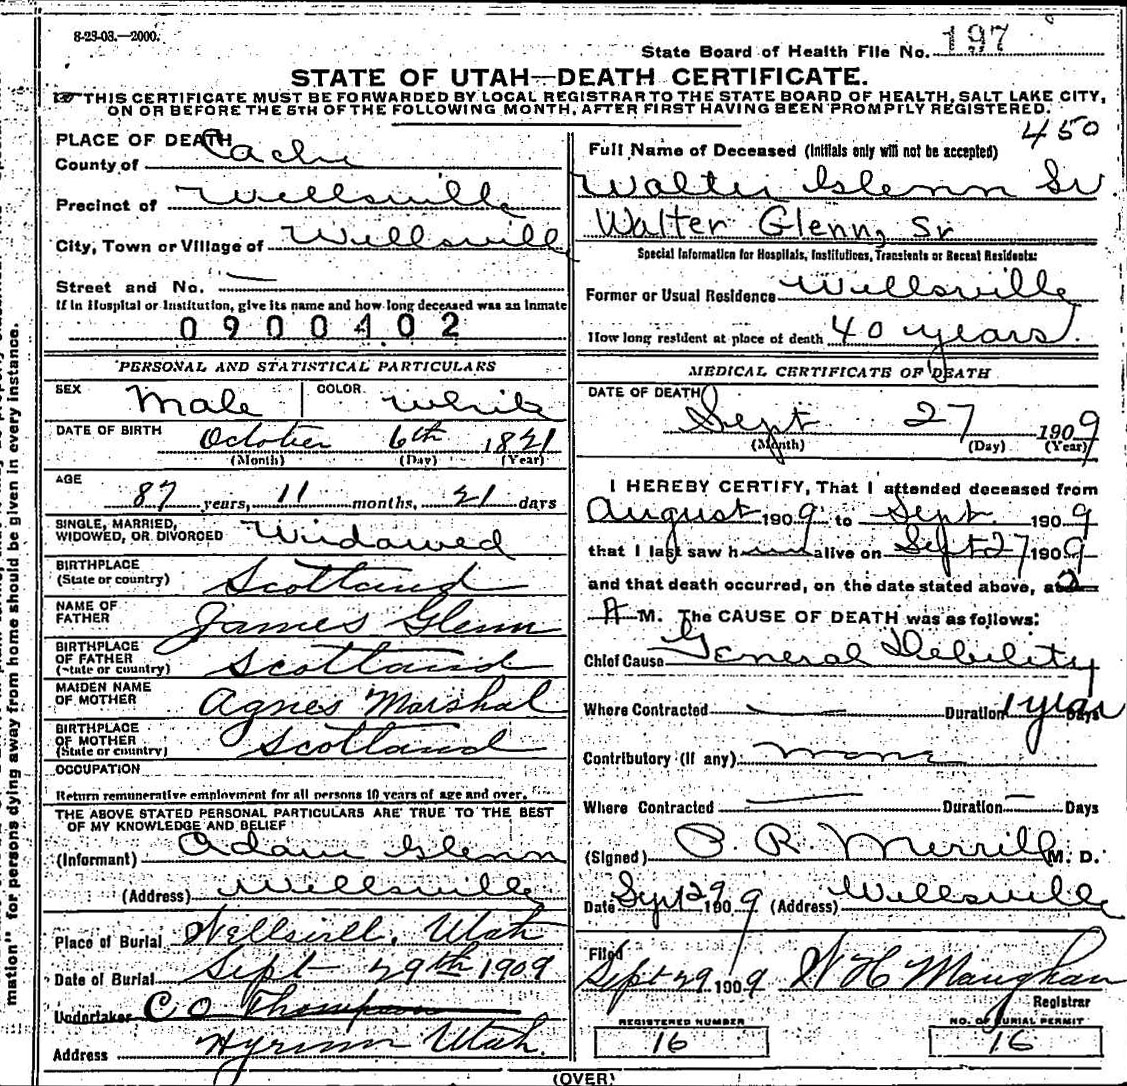 8-23-08.—2000.
State Board of Health File No. 197
STATE OF UTAH—DEATH CERTIFICATE.
THIS CERTIFICATE MUST BE FORWARDED BY LOCAL REGISTRAR TO THE STATE BOARD OF HEALTH, SALT LAKE CITY,
ON OR BEFORE THE 5TH OF THE FOLLOWING MONTH, AFTER FIRST HAVING BEEN PROMPTLY REGISTERED.
450
PLACE OF DEATH
County of Cache
Precinct of Wellsville
City, Town or Village of Wellsville
Street and No. —
If in Hospital or Institution, give its name and how long deceased was an inmate
0 9 0 0 4 0 2
PERSONAL AND STATISTICAL PARTICULARS
SEX Male COLOR White
DATE OF BIRTH October 6th 1821
(Month) (Day) (Year)
AGE
87 years, 11 months, 21 days
SINGLE, MARRIED,
WIDOWED, OR DIVORCED Widowed
BIRTHPLACE
(State or country) Scotland
NAME OF
FATHER James Glenn
BIRTHPLACE
OF FATHER
(State or country) Scotland
MAIDEN NAME
OF MOTHER Agnes Marshal
BIRTHPLACE
OF MOTHER
(State or country) Scotland
OCCUPATION
Return remunerative employment for all persons 10 years of age and over.
THE ABOVE STATED PERSONAL PARTICULARS ARE TRUE TO THE BEST
OF MY KNOWLEDGE AND BELIEF
(Informant) Adam Glenn
(Address) Wellsville
Place of Burial Wellsvill, Utah
Date of Burial Sept 29th 1909
Undertaker C O Thompson
Address Hyrum Utah.
Full Name of Deceased (Initials only will not be accepted)
Walter Glenn Sr
Walter Glenn, Sr
Special Information for Hospitals, Institutions, Transients or Recent Residents:
Former or Usual Residence Wellsville
How long resident at place of death 40 years.
MEDICAL CERTIFICATE OF DEATH
DATE OF DEATH
Sept 27 1909
(Month) (Day) (Year)
I HEREBY CERTIFY, That I attended deceased from
August 1909 to Sept. 1909
that I last saw him alive on Sept 27 1909
and that death occurred, on the date stated above, at 2
A M. The CAUSE OF DEATH was as follows:
Chief Cause General Debility
Where Contracted — Duration 1 year Days
Contributory (if any) none
Where Contracted — Duration — Days
(Signed) P. R. Merrill M. D.
Date Sept 29 1909 (Address) Wellsville
Filed
Sept 29 1909 W H Maughan
Registrar
REGISTERED NUMBER
16
NO. OF BURIAL PERMIT
16
(OVER)
mation" for persons dying away from home should be given in every instance.